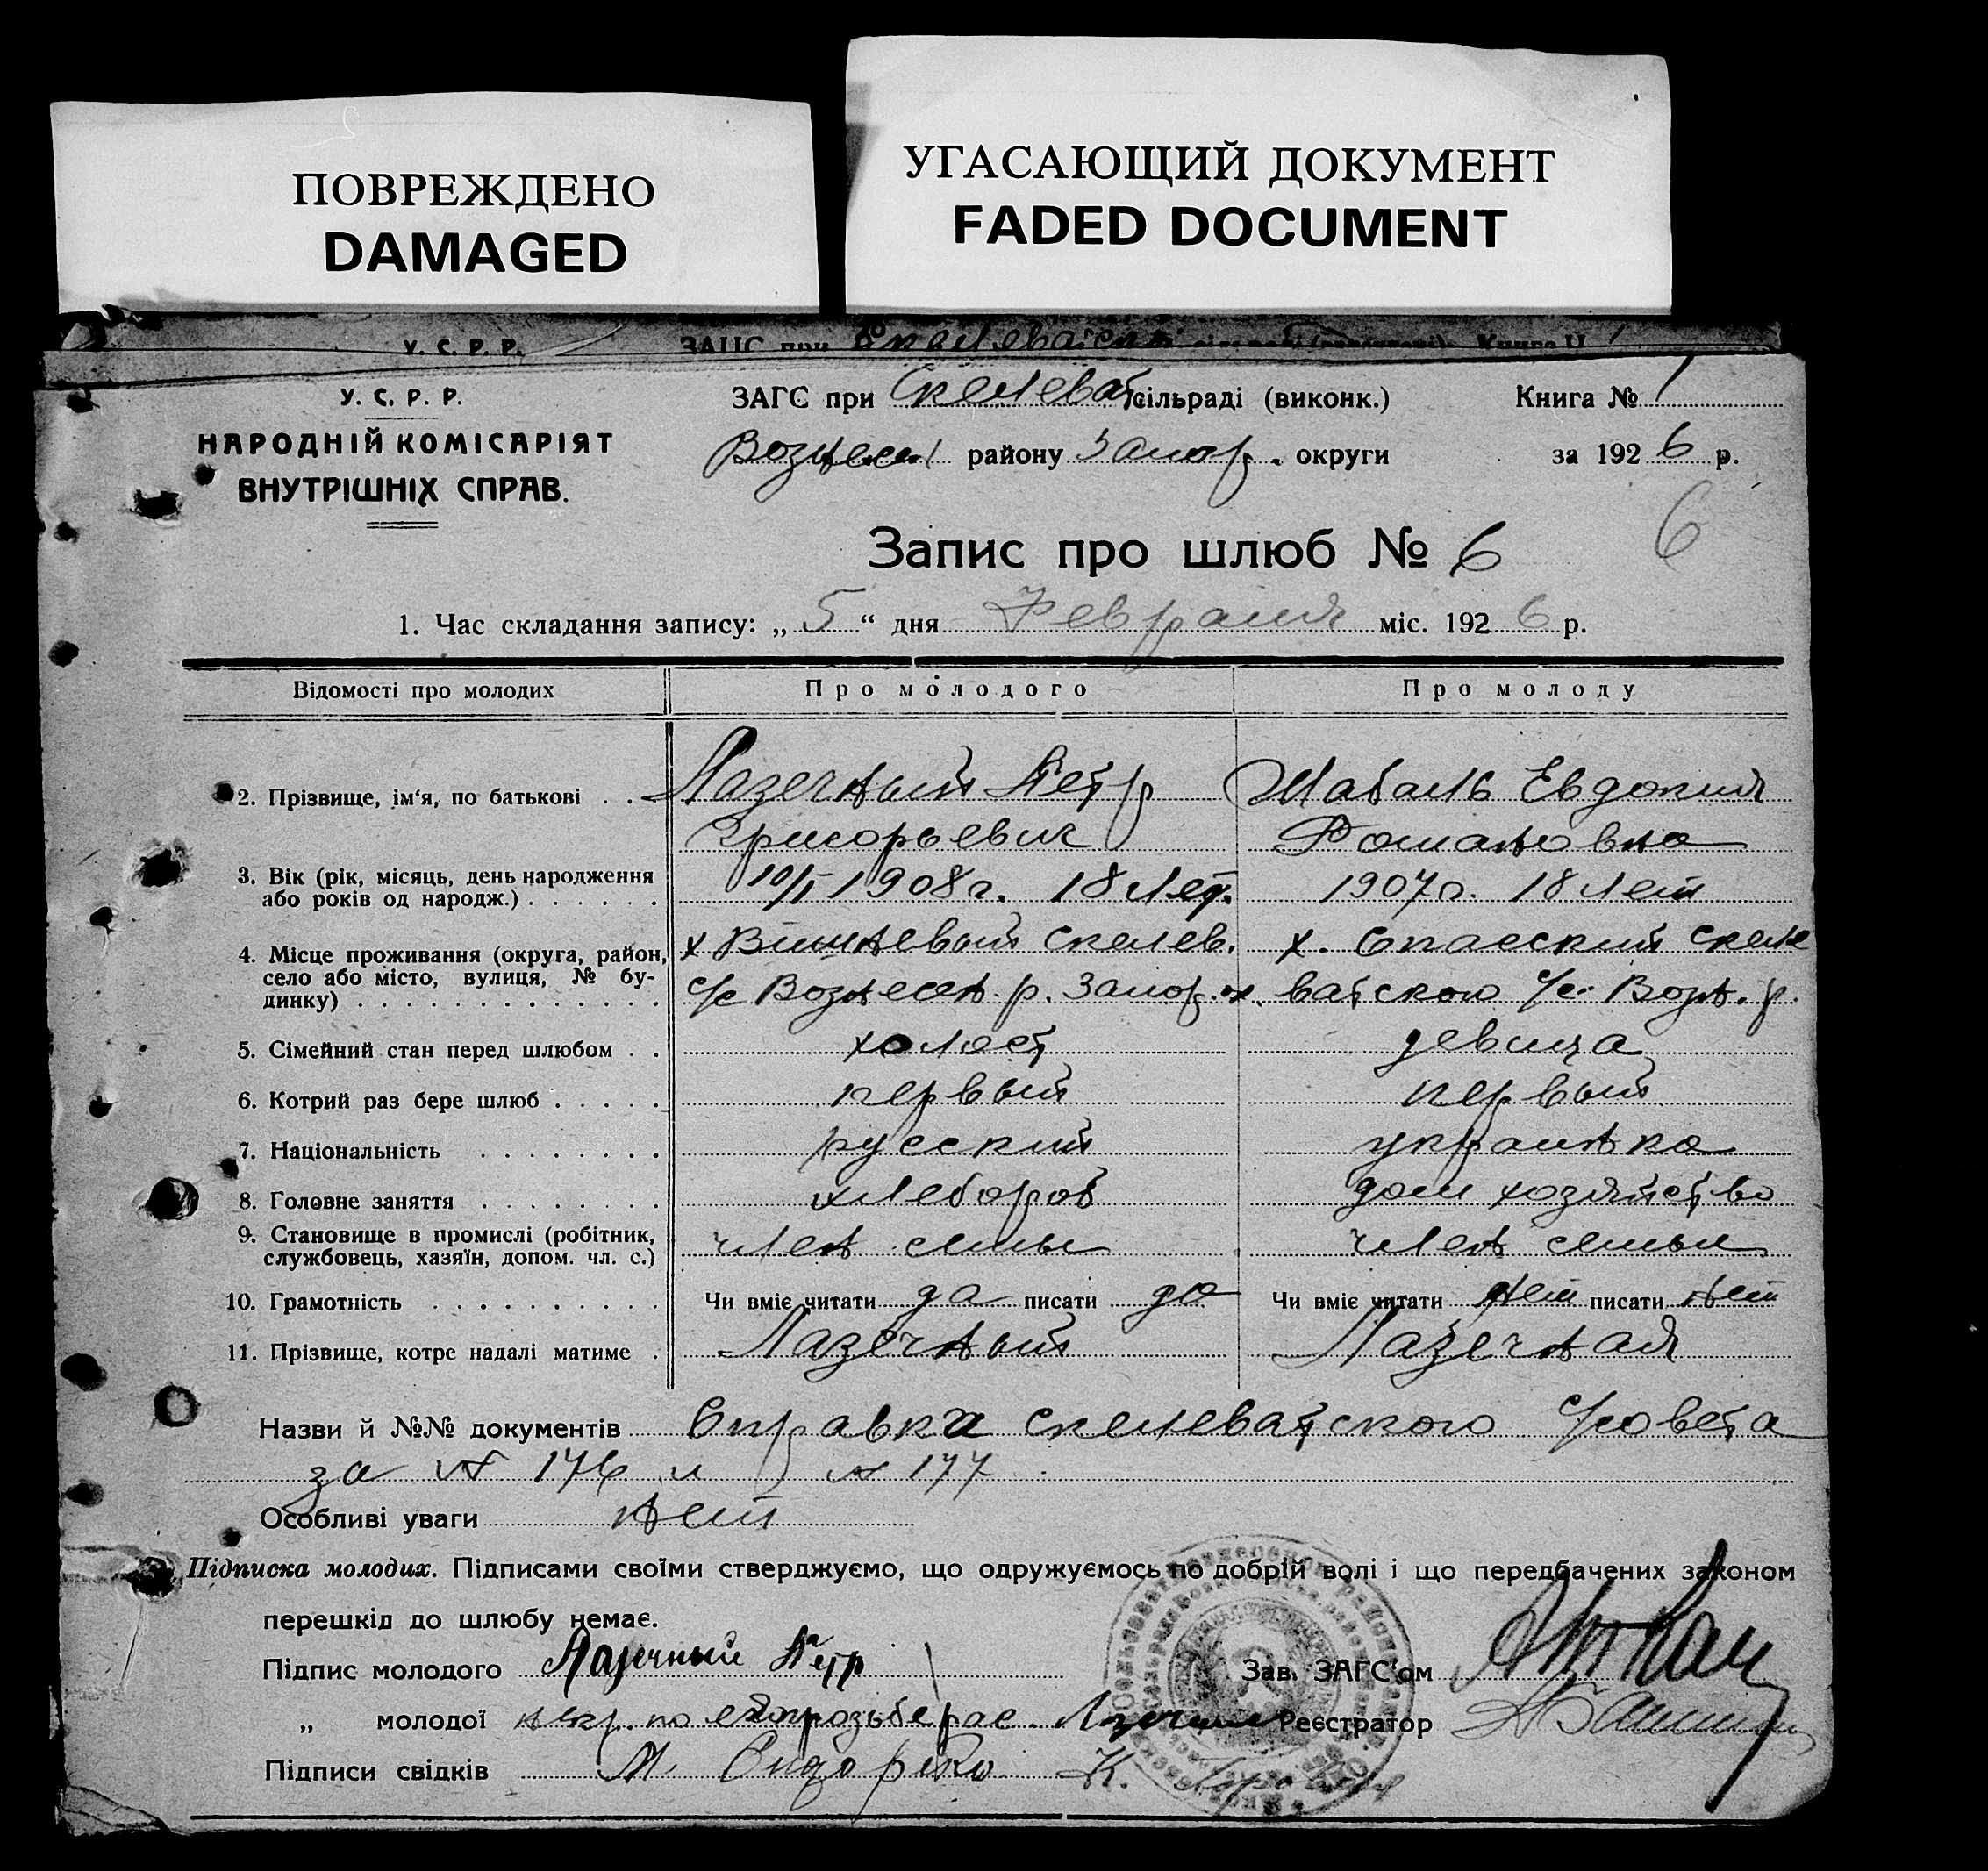 ПОВРЕЖДЕНО
DAMAGED
УГАСАЮЩИЙ ДОКУМЕНТ
FADED DOCUMENT
У. С. Р. Р.
У. С. Р. Р.
НАРОДНІЙ КОМІСАРІЯТ
ВНУТРІШНІХ СПРАВ.
ЗАГС при Скелеват сільраді (виконк.) Книга № 1
Вознесен району Запор. округи за 1926 р.
6
Запис про шлюб № 6
1. Час складання запису: „ 5 “ дня Февраля міс. 1926 р.
Відомості про молодих Про молодого Про молоду
2. Прізвище, ім‘я, по батькові . . Лазечный Петр Шабаль Евдокия
Григорьевич Романовна
3. Вік (рік, місяць, день народження 10/I 1908 г. 18 лет. 1907 г. 18 лет
або років од народж.) . . . . . .
4. Місце проживання (округа, район, х Вишневый Скелев. х. Спасский Скеле
село або місто, вулиця, № бу-
динку) . . . . . . . . . . . . . с/с Вознесен. р. Запор. ок. ватского с/с. Возн. р.
5. Сімейний стан перед шлюбом . . холост девица
6. Котрий раз бере шлюб . . . . . первый первый
7. Національність . . . . . . . . русский украинка
8. Головне заняття . . . . . . . . хлебороб дом хозяйство
9. Становище в промислі (робітник,
службовець, хазяїн, допом. чл. с.) член семьи член семьи
10. Грамотність . . . . . . . . . . Чи вміє читати да писати да Чи вміє читати нет писати нет
11. Прізвище, котре надалі матиме . Лазечный Лазечная
Назви й №№ документів Справка Скелеватского с/совета
за № 176 и № 177
Особливі уваги нет
Підписка молодих. Підписами своїми стверджуємо, що одружуємось по добрій волі і що передбачених законом
перешкід до шлюбу немає.
Підпис молодого Лазечный Петр Зав. ЗАГС‘ом
„ молодої негр. по ея прозьбе рас. Реєстратор
Підписи свідків М. К.